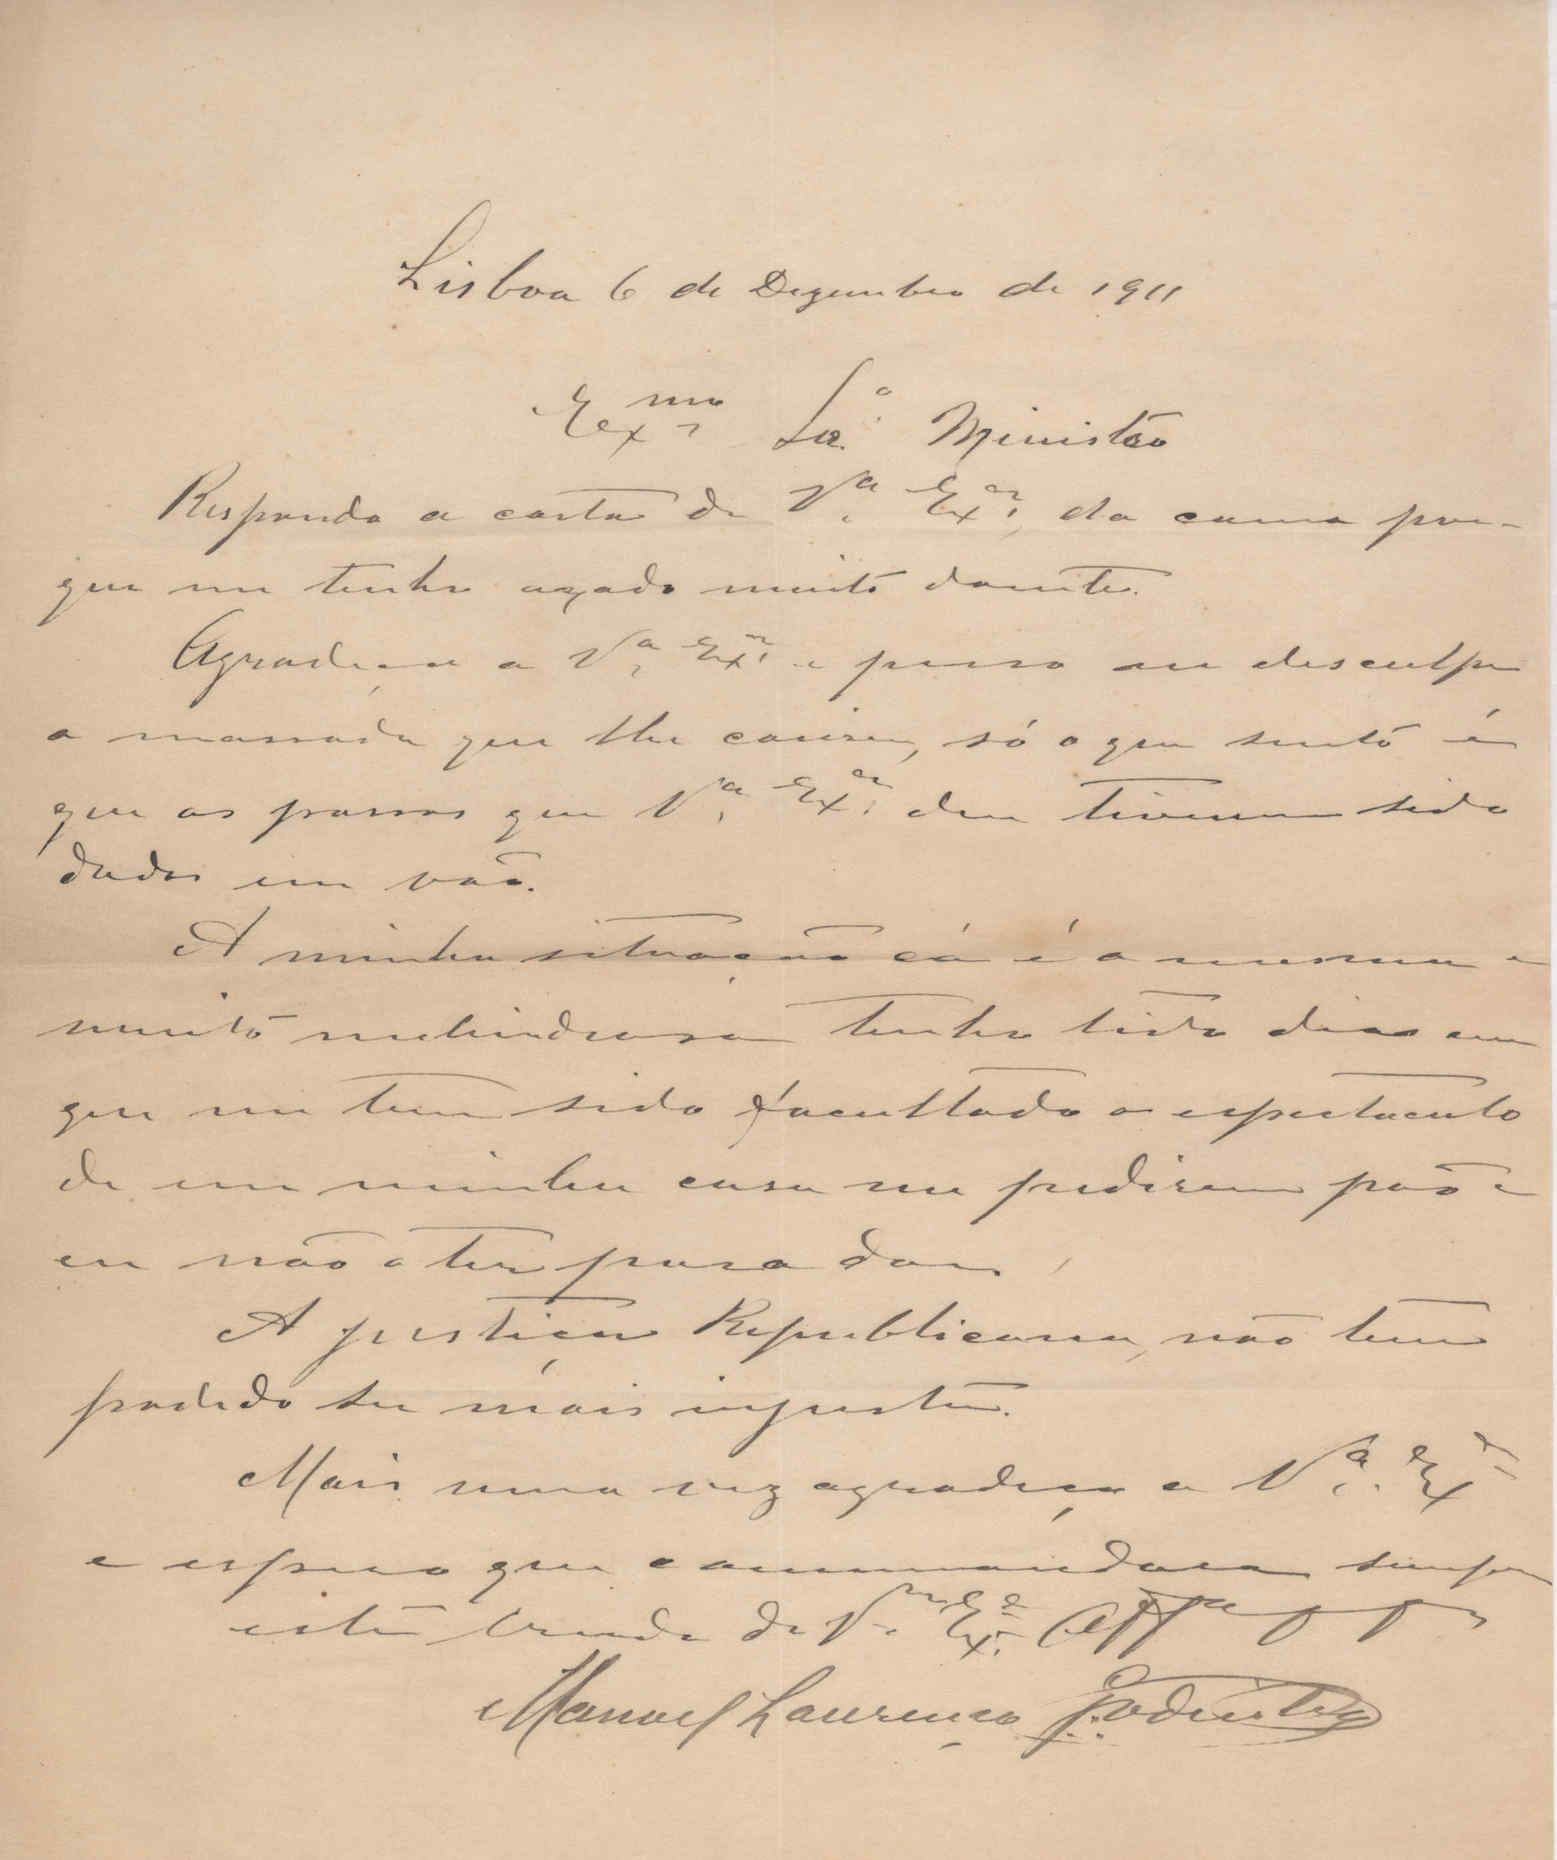 Lisboa 6 de Dezembro de 1911
Exmo Sr. Ministro
Respondo a carta de Va. Exa., da cama por-
que me tenho axado muito doente.
Agradeço a Va. Exa. e peço me desculpe
a massada que lhe causei, só o que sinto é
que os passos que Va. Exa. deu tivessem sido
dados em vão.
A minha situação cá é a mesma e
muito melindrosa tenho tido dias em
que me tem sido facultado o espectaculo
de em minha casa me pedirem pão e
eu não o ter para dar.
A justiça Republicana, não tem
podido ser mais injusta.
Mais uma vez agradeço a Va. Exa
e espero que commandará sempre
este criado de Va. Exa.
Manoel Lourenço Godinho